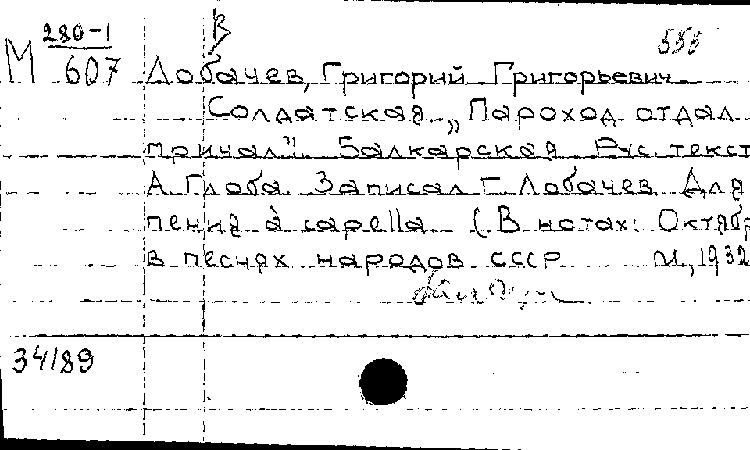 В
М 280-1
607
553
Лобачев, Григорий Григорьевич
Солдатская „Пароход отдал
причал". Балкарская Рус. текст
А Глоба. Записал Г Лобачев Для
пения à capella (В нотах: Октябр
в песнях народов СССР М, 1932
34/89